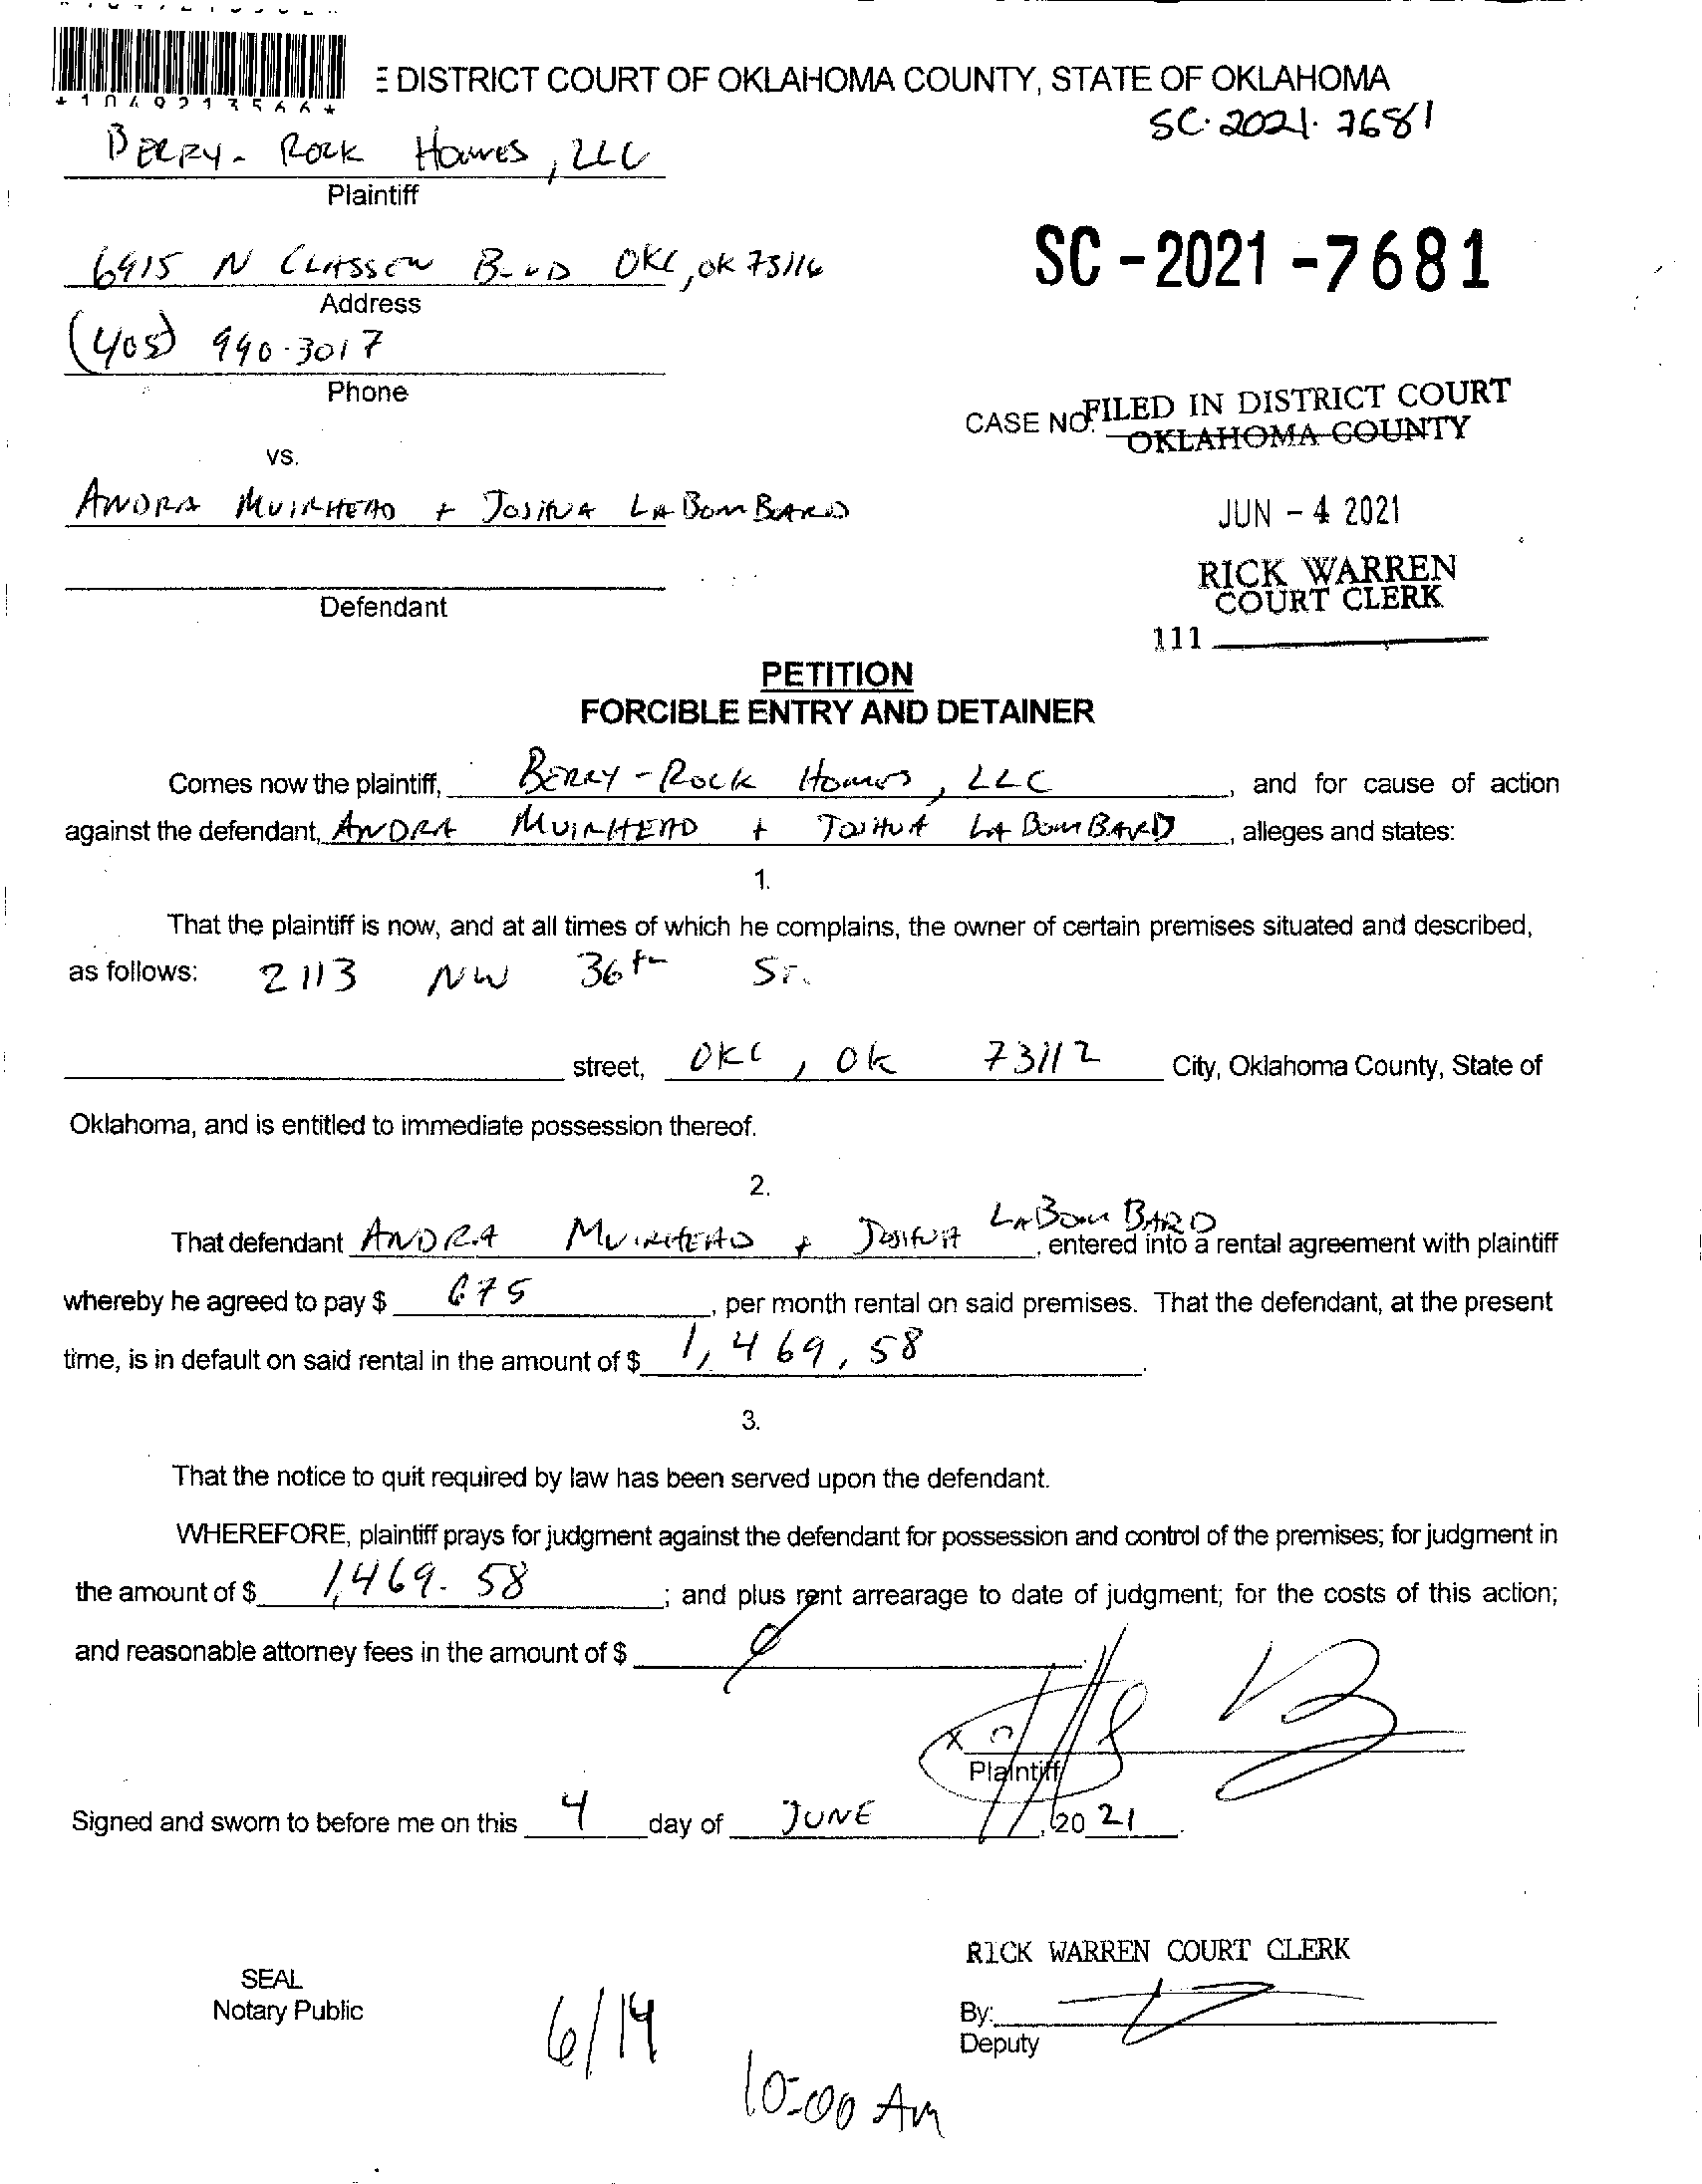 *1049213566*
E DISTRICT COURT OF OKLAHOMA COUNTY, STATE OF OKLAHOMA
SC-2021-7681
BERRY-ROCK HOMES, LLC
Plaintiff
6915 N CLASSEN BLVD OKC, OK 73116
SC-2021-7681
Address
(405) 990-3017
Phone
CASE NO. FILED IN DISTRICT COURT
OKLAHOMA COUNTY
vs.
ANDRA MUIRHEAD + JOSHUA LABOMBARD
JUN - 4 2021
RICK WARREN
COURT CLERK
Defendant
111
PETITION
FORCIBLE ENTRY AND DETAINER
Comes now the plaintiff, BERRY-ROCK HOMES, LLC, and for cause of action
against the defendant, ANDRA MUIRHEAD + JOSHUA LABOMBARD, alleges and states:
1.
That the plaintiff is now, and at all times of which he complains, the owner of certain premises situated and described,
as follows: 2113 NW 36th ST.
street, OKC, OK 73112 City, Oklahoma County, State of
Oklahoma, and is entitled to immediate possession thereof.
2.
That defendant ANDRA MUIRHEAD + JOSHUA LABOMBARD, entered into a rental agreement with plaintiff
whereby he agreed to pay $ 675, per month rental on said premises. That the defendant, at the present
time, is in default on said rental in the amount of $ 1,469.58.
3.
That the notice to quit required by law has been served upon the defendant.
WHEREFORE, plaintiff prays for judgment against the defendant for possession and control of the premises; for judgment in
the amount of $ 1,469.58; and plus rent arrearage to date of judgment; for the costs of this action;
and reasonable attorney fees in the amount of $ 0.
X
Plaintiff
Signed and sworn to before me on this 4 day of JUNE, 20 21.
RICK WARREN COURT CLERK
SEAL
Notary Public
By:
Deputy
6/14
10:00 AM